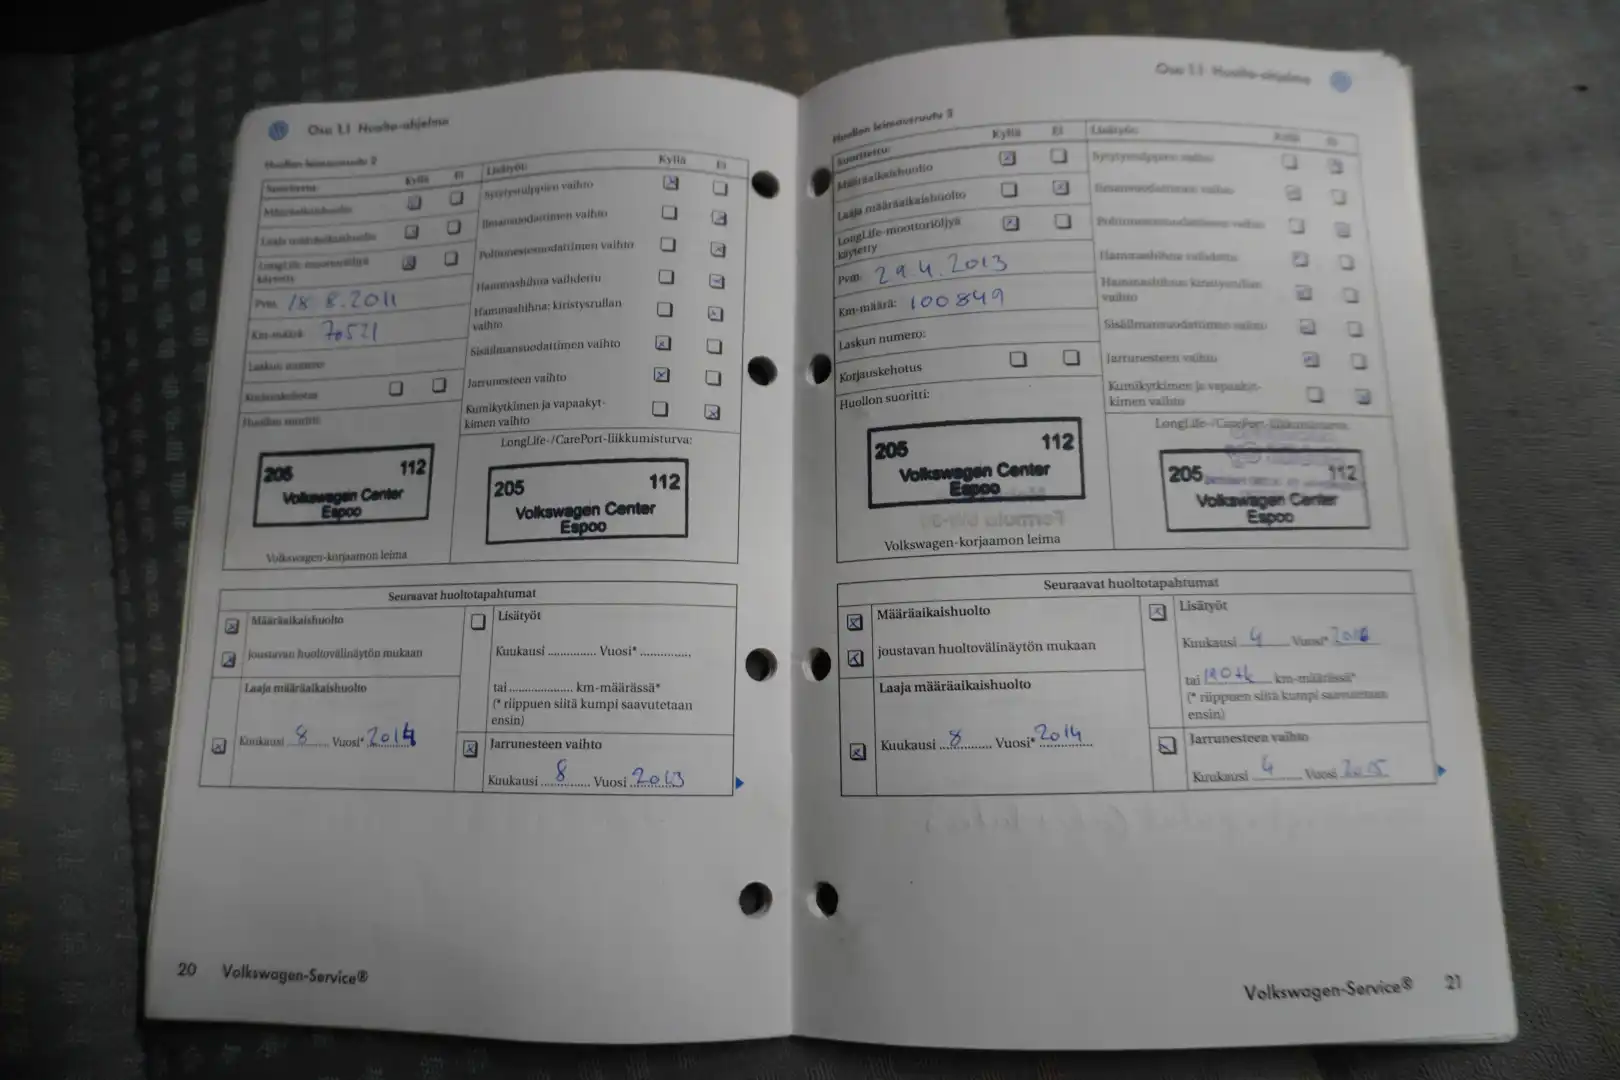 Osa 1.1 Huolto-ohjelma
Huollon leimausruutu 2
Suoritettu: Kyllä Ei
Määräaikaishuolto
Laaja määräaikaishuolto
LongLife-moottoriöljyä
käytetty
Pvm. 18.8.2011
Km-määrä: 70521
Laskun numero:
Korjauskehotus
Huollon suoritti:
205 112
Volkswagen Center
Espoo
Volkswagen-korjaamon leima
Lisätyöt: Kyllä Ei
Sytytystulppien vaihto
Ilmansuodattimen vaihto
Polttonestesuodattimen vaihto
Hammashihna vaihdettu
Hammashihna: kiristysrullan
vaihto
Sisäilmansuodattimen vaihto
Jarrunesteen vaihto
Kumikytkimen ja vapaakyt-
kimen vaihto
LongLife-/CarePort-liikkumisturva:
205 112
Volkswagen Center
Espoo
Seuraavat huoltotapahtumat
Määräaikaishuolto
joustavan huoltovälinäytön mukaan
Laaja määräaikaishuolto
Kuukausi 8 Vuosi* 2014
Lisätyöt
Kuukausi .............. Vuosi* ..............
tai .................... km-määrässä*
(* riippuen siitä kumpi saavutetaan
ensin)
Jarrunesteen vaihto
Kuukausi 8 Vuosi 2013
20 Volkswagen-Service®
Osa 1.1 Huolto-ohjelma
Huollon leimausruutu 3
Suoritettu: Kyllä Ei
Määräaikaishuolto
Laaja määräaikaishuolto
LongLife-moottoriöljyä
käytetty
Pvm. 29.4.2013
Km-määrä: 100849
Laskun numero:
Korjauskehotus
Huollon suoritti:
205 112
Volkswagen Center
Espoo
Volkswagen-korjaamon leima
Lisätyöt: Kyllä Ei
Sytytystulppien vaihto
Ilmansuodattimen vaihto
Polttonestesuodattimen vaihto
Hammashihna vaihdettu
Hammashihna: kiristysrullan
vaihto
Sisäilmansuodattimen vaihto
Jarrunesteen vaihto
Kumikytkimen ja vapaakyt-
kimen vaihto
LongLife-/CarePort-liikkumisturva:
205 112
Volkswagen Center
Espoo
Seuraavat huoltotapahtumat
Määräaikaishuolto
joustavan huoltovälinäytön mukaan
Laaja määräaikaishuolto
Kuukausi 8 Vuosi* 2014
Lisätyöt
Kuukausi 4 Vuosi*
tai 190tk km-määrässä*
(* riippuen siitä kumpi saavutetaan
ensin)
Jarrunesteen vaihto
Kuukausi 4 Vuosi 2015
Volkswagen-Service® 21